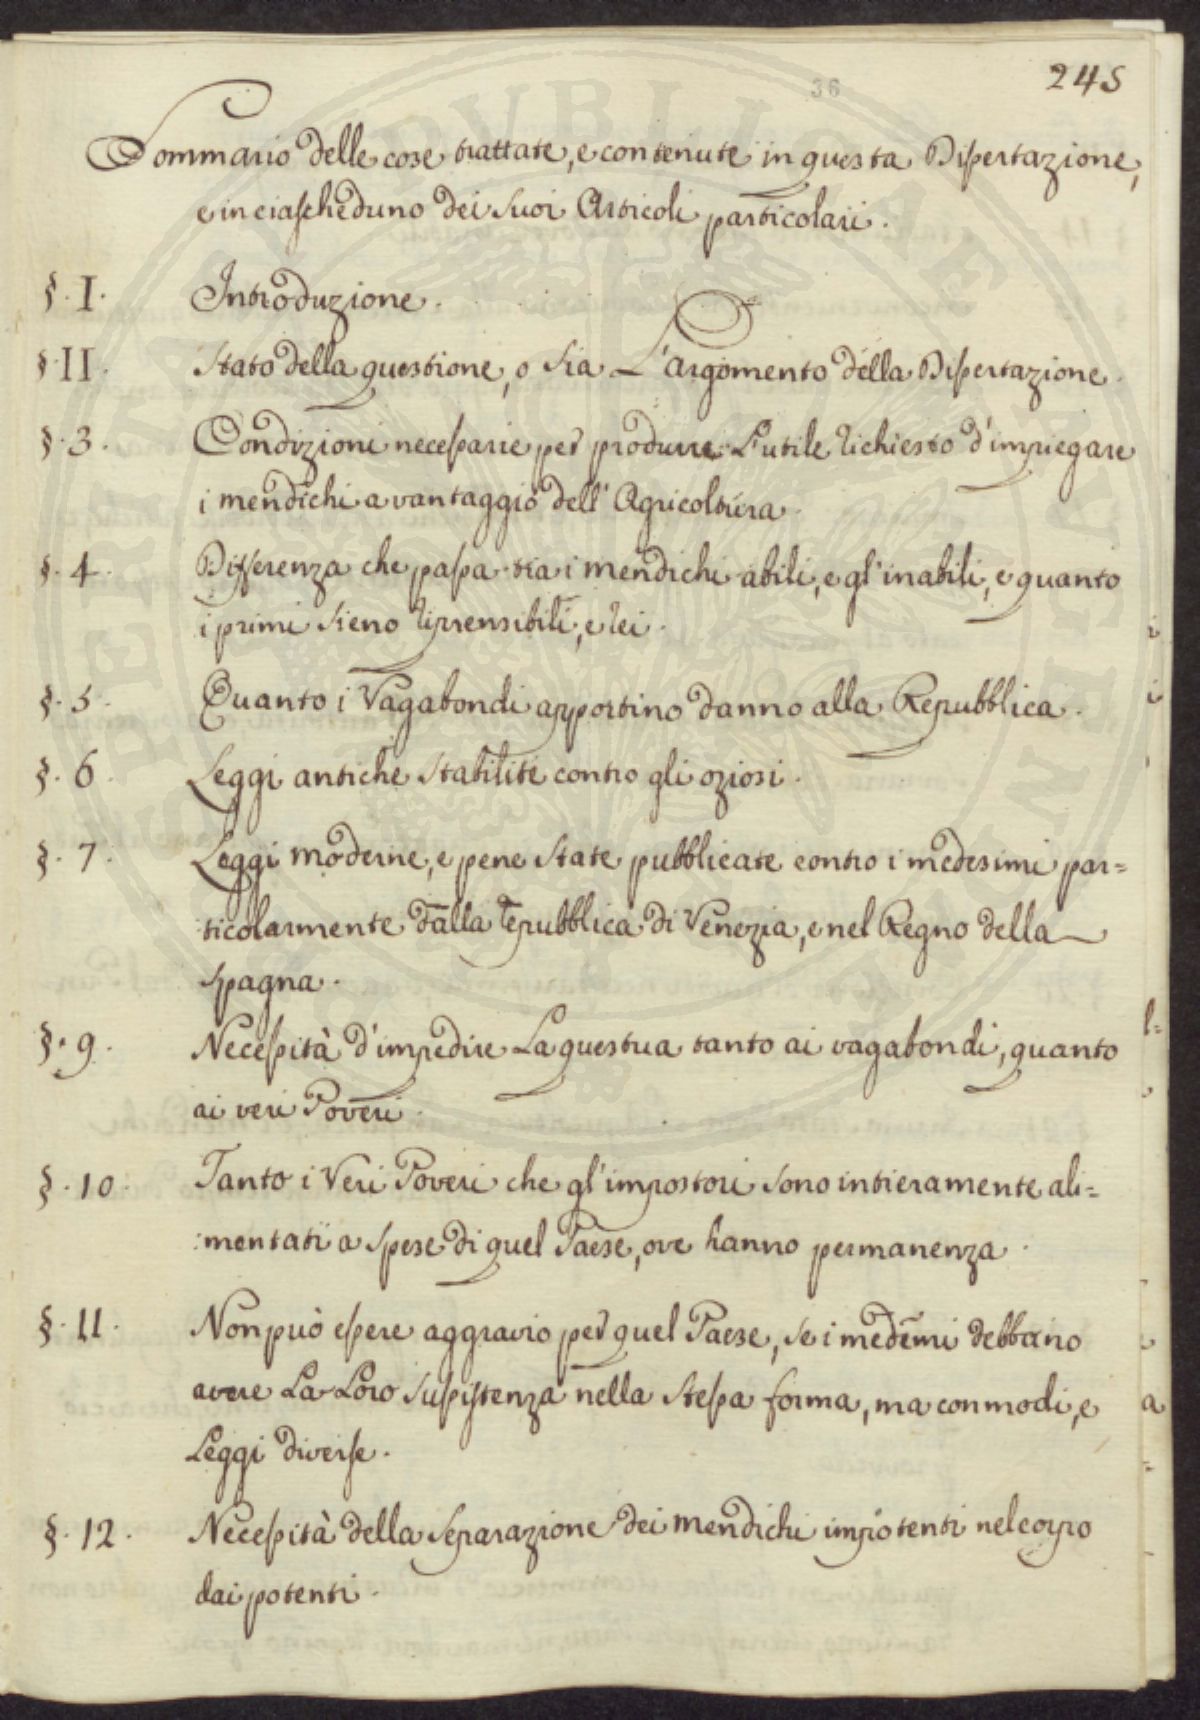 36
245
Sommario delle cose trattate, e contenute in questa Dissertazione,
e in ciascheduno dei suoi Articoli particolari.
§. I. Introduzione.
§. II. Stato della questione, o sia L'argomento della Dissertazione.
§. 3. Condizioni necessarie per produrre L'utile richiesto d'impiegare
i mendichi a vantaggio dell'Agricoltura.
§. 4. Differenza che passa tra i mendichi abili, e gl'inabili, e quanto
i primi sieno riprensibili, e rei.
§. 5. Quanto i Vagabondi apportino danno alla Repubblica.
§. 6. Leggi antiche stabilite contro gli oziosi.
§. 7. Leggi moderne, e pene state pubblicate contro i medesimi par=
ticolarmente dalla repubblica di Venezia, e nel Regno della
Spagna.
§. 9. Necessità d'impedire La questua tanto ai vagabondi, quanto
ai veri Poveri.
§. 10. Tanto i Veri Poveri che gl'impostori sono intieramente ali=
:mentati a spese di quel Paese, ove hanno permanenza.
§. 11. Non può essere aggravio per quel Paese, se i medemi debbano
avere La Loro sussistenza nella stessa forma, ma con modi, e
Leggi diverse.
§. 12. Necessità della separazione dei mendichi impotenti nel corpo
dai potenti.